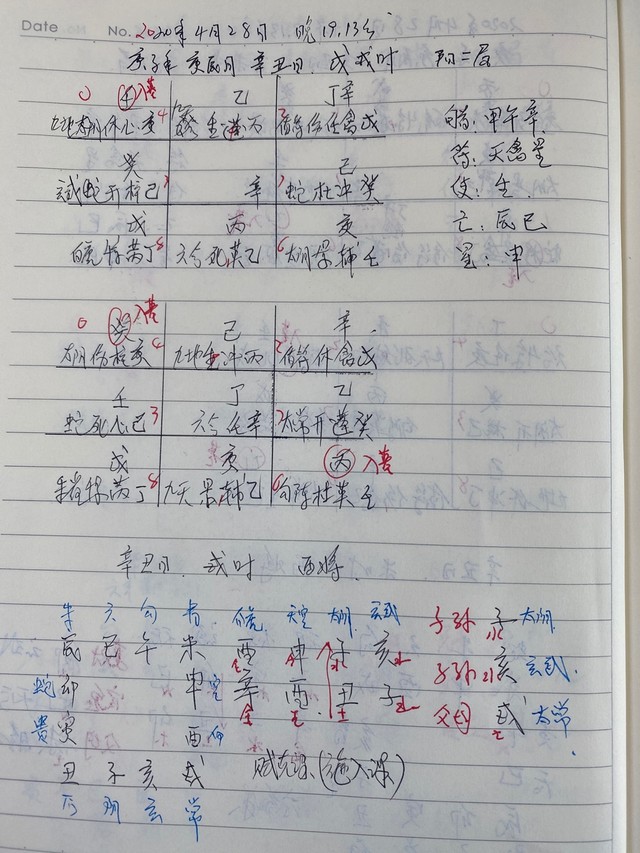 Date No. 2020年4月28日 晚19.13分
庚子年 庚辰月 辛丑日. 戊戌时 阳二局
0 壬 入墓 乙 丁辛
九地 太阴 休心庚 4 生蓬丙 2 值符伤任禽戊 旬首: 甲午辛
癸 己 符: 天禽星
玄武蛇开柱己 3 辛 7 蛇杜冲癸 使: 生.
戊 丙 庚 亡: 辰巳
白虎惊芮丁 8 六合死英乙 6 太阴景辅壬 星: 申
0 癸 入墓 己 辛
太阴伤柱庚 4 九地生冲丙 2 值符休禽戊
壬 丁 乙
蛇死心己 3 六合任辛 7 太常开蓬癸
戊 庚 丙 入墓
朱雀惊芮丁 8 九天景辅乙 6 勾陈杜英壬
辛丑日. 戌时 酉将.
朱 六 勾 青. 白虎 天空 太阴 玄武 子孙 子水 太阴
辰 巳 午 未 酉金 申 子水 亥水
子孙 亥 玄武.
蛇 卯 申 空 辛金 酉金 丑土 子水
贵 寅 酉 白 父母 戌土 太常
丑 子 亥 戌 贼克课(元首入课)
后 阴 玄 常